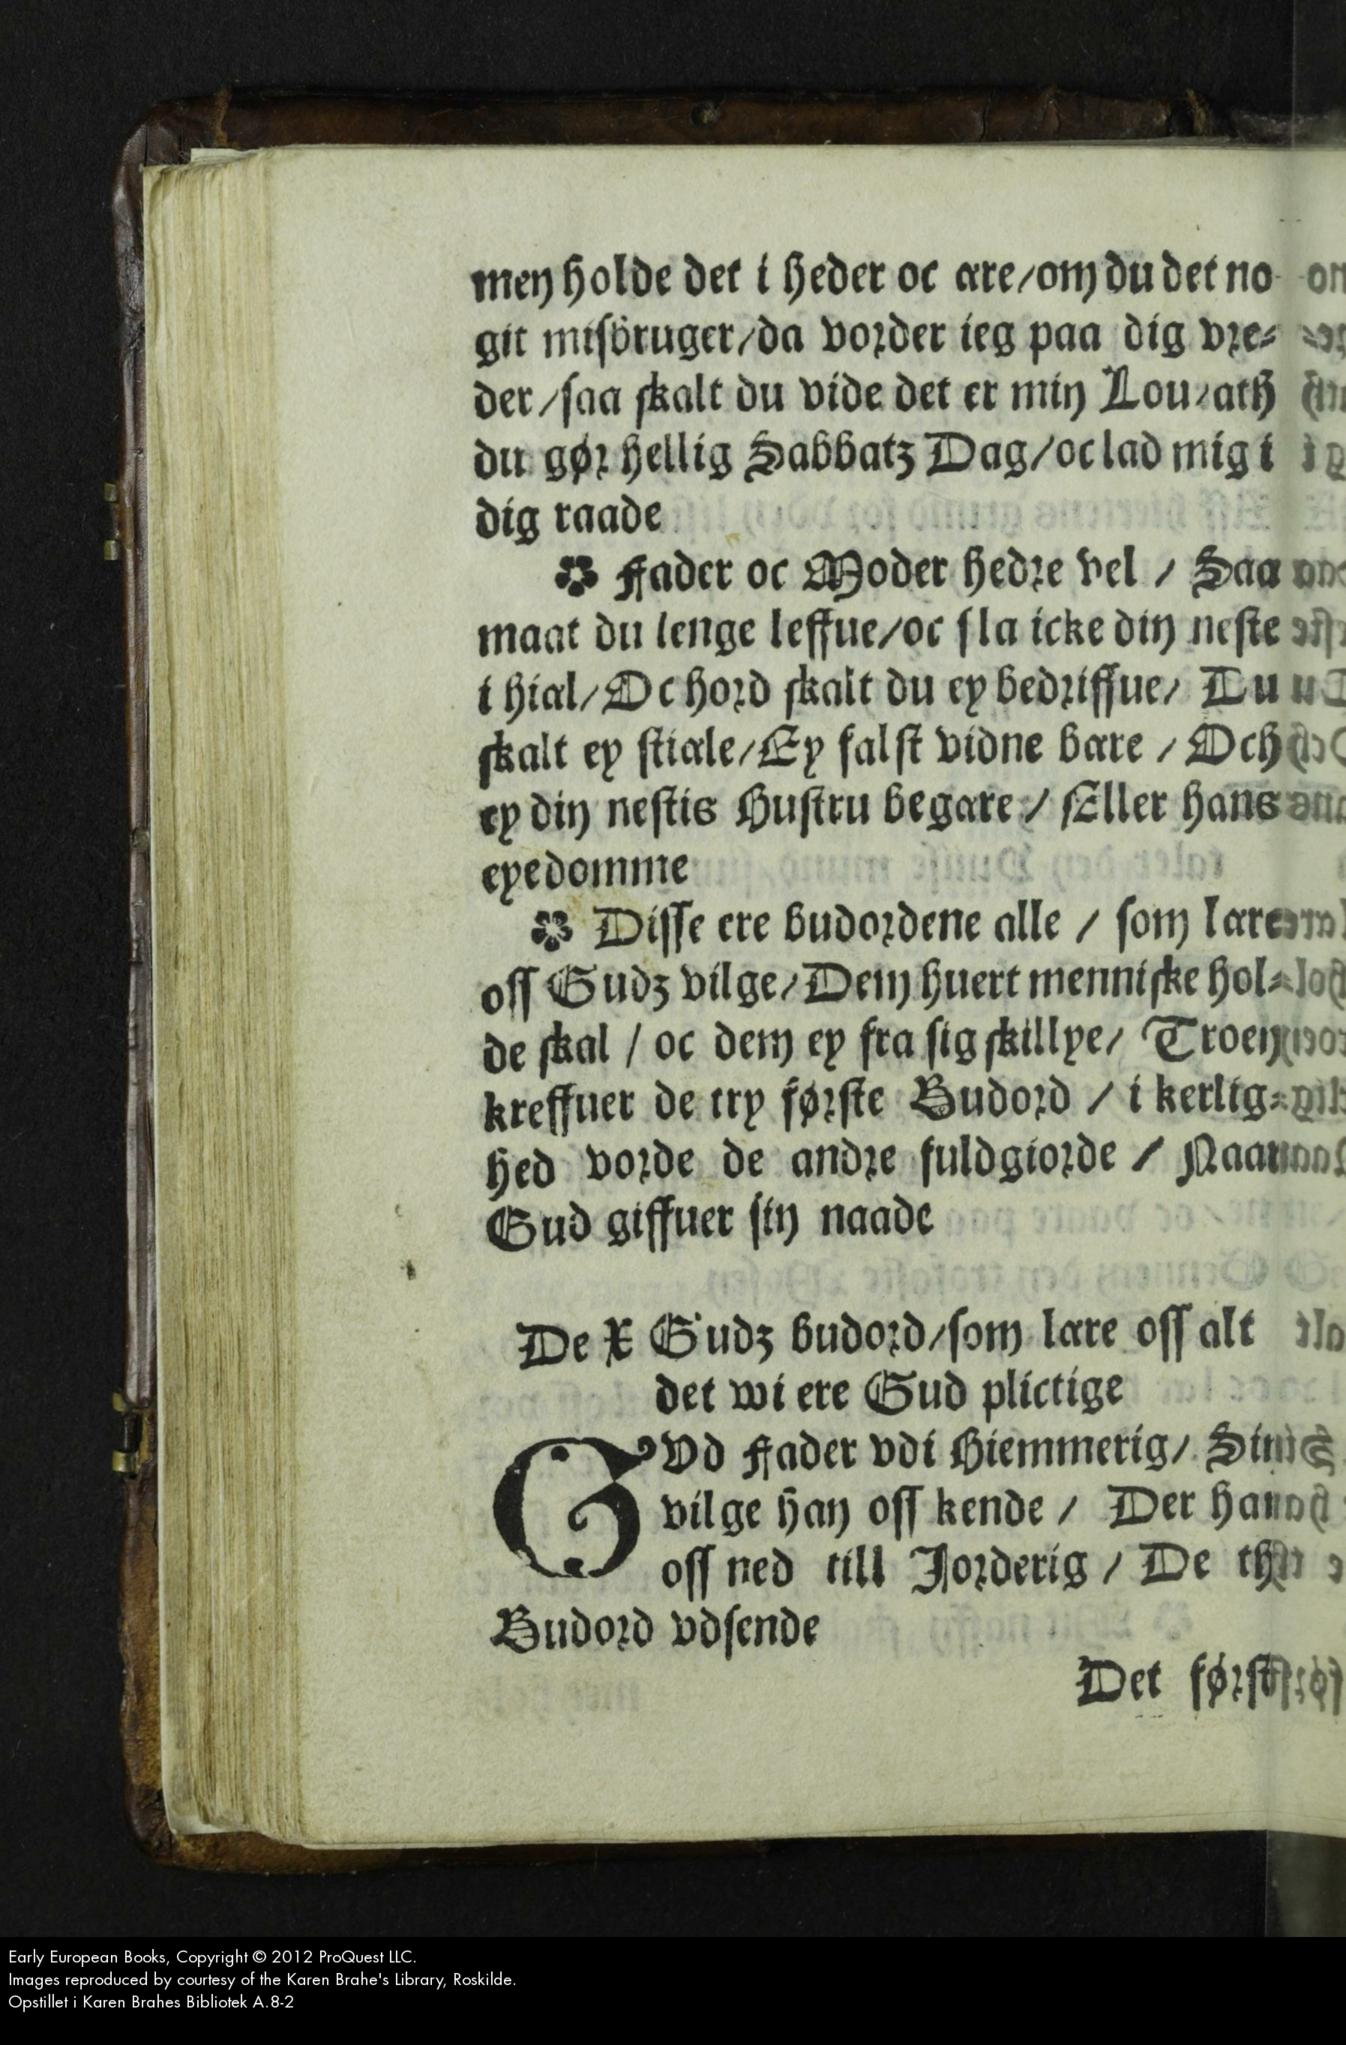 men holde det i heder oc ære/om du det no
git misbruger/da vorder ieg paa dig vre⸗
der/saa skalt du vide det er min Lou/ath
du gør hellig Sabbatz Dag/oc lad mig i
dig raade
✿ Fader oc Moder hedre vel / Saa
maat du lenge leffue/oc sla icke din neste
i hiæl/Oc hord skalt du ey bedriffue/ Du
skalt ey stiæle/Ey falst vidne bære / Och
ey din nestis Hustru begære / Eller hans
eyedomme
✿ Disse ere budordene alle / som lære
oss Gudz vilge/Dem huert menniske hol⸗
de skal / oc dem ey fra sig skillye/ Troen
kreffuer de try første Budord / i kerlig⸗
hed vorde de andre fuldgiorde / Naar
Gud giffuer sin naade
De X Gudz budord/som lære oss alt
det wi ere Gud plictige
GVd Fader vdi Hiemmerig/ Sin
vilge han oss kende / Der han
oss ned till Jorderig / De thi
Budord vdsende
Det først
Early European Books, Copyright © 2012 ProQuest LLC.
Images reproduced by courtesy of the Karen Brahe's Library, Roskilde.
Opstillet i Karen Brahes Bibliotek A.8-2